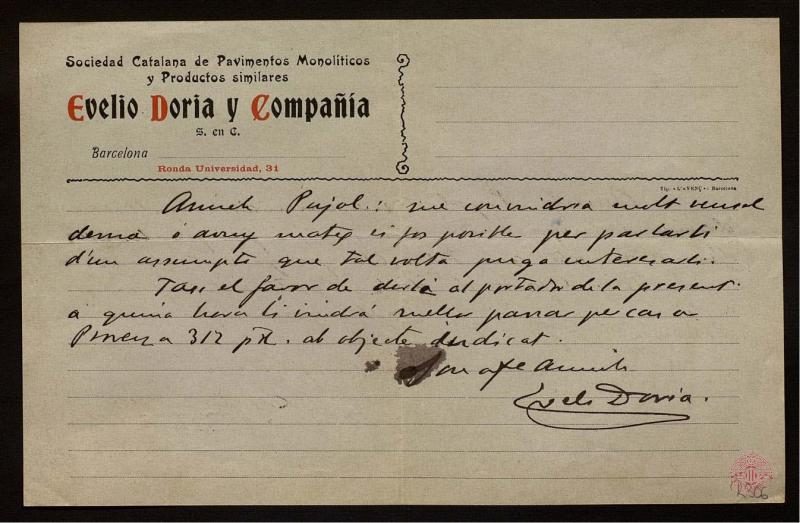 Sociedad Catalana de Pavimentos Monolíticos
y Productos similares
Evelio Doria y Compañía
S. en C.
Barcelona
Ronda Universidad, 31
Tip. «L'AVENÇ»: Barcelona
Amich Pujol: me convindria molt veurel
demá ó avuy mateix si fos posible per parlarli
d'un assumpto que tal volta puga interesarli.
Fassi el favor de dirli al portador de la present
a quina hora li vindrá millor passar per casa
312 ab objecte indicat.
Son afe Amich
Eveli Doria.
R.306